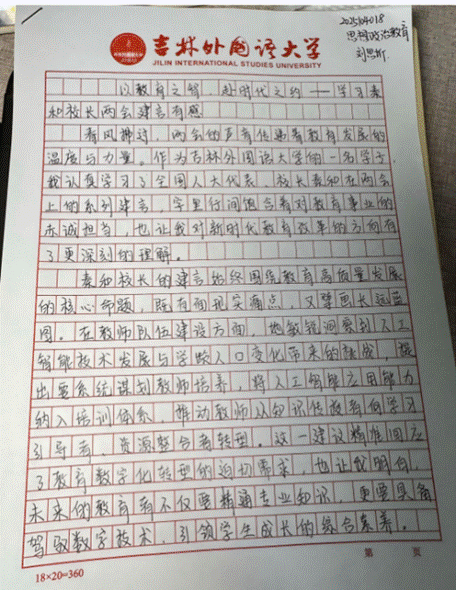 2025104018
思想政治教育
刘思昕
吉林外国语大学
JILIN INTERNATIONAL STUDIES UNIVERSITY
以教育之智，赴时代之约——学习秦
和校长两会建言有感
春风拂对，两会的声音传递着教育发展的
温度与力量。作为吉林外国语大学的一名学子，
我认真学习了全国人大代表、校长秦和在两会
上的系列建言，字里行间饱含着对教育事业的
赤诚担当，也让我对新时代教育改革的方向有
了更深刻的理解。
秦和校长的建言始终围绕教育高质量发展
的核心命题，既直面现实痛点，又擘画长远蓝
图。在教师队伍建设方面，她敏锐洞察到人工
智能技术发展与学龄人口变化带来的挑战，提
出要系统谋划教师培养，将人工智能应用能力
纳入培训体系，推动教师从知识传授者向学习
引导者、资源整合者转型。这一建议精准回应
了教育数字化转型的迫切需求，也让我明白，
未来的教育者不仅要精通专业知识，更要具备
驾驭数字技术、引领学生成长的综合素养。
18×20=360
第 页